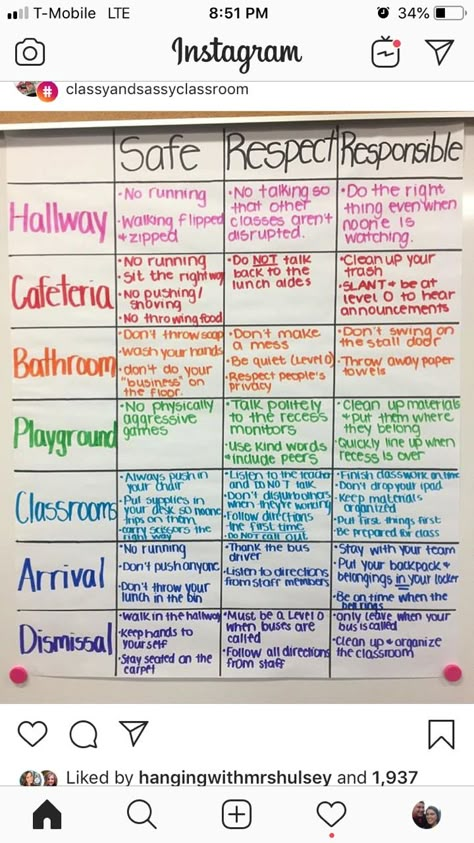 T-Mobile LTE 8:51 PM 34%
Instagram
classyandsassyclassroom
Safe Respect Responsible
Hallway
•No running
•Walking flipped
+ zipped
•No talking so
that other
classes aren't
disrupted.
•Do the right
thing even when
no one is
watching.
Cafeteria
•No running
•Sit the right way
•No pushing/
shoving
•No throwing food
•Do NOT talk
back to the
lunch aides
•Clean up your
trash
•SLANT + be at
level 0 to hear
announcements
Bathroom
•Don't throw soap
•Wash your hands
•don't do your
"business" on
the floor.
•Don't make
a mess
•Be quiet (Level 0)
•Respect people's
privacy
•Don't swing on
the stall door
•Throw away paper
towels
Playground
•No physically
aggressive
games
•Talk politely
to the recess
monitors
•Use kind words
+ include peers
•Clean up materials
+ put them where
they belong
•Quickly line up when
recess is over
Classrooms
•Always push in
your chair
•Put supplies in
your desk so no one
trips on them
•carry scissors the
right way
•Listen to the teacher
and DO NOT talk
•Don't disturb others
when they're working
•Follow directions
the first time
•DO NOT CALL OUT
•Finish classwork on time
•Don't drop your ipad
•Keep materials
organized
•Put first things first
•Be prepared for class
Arrival
•No running
•Don't push anyone
•Don't throw your
lunch in the bin
•Thank the bus
driver
•Listen to directions
from staff members
•Stay with your team
•Put your backpack +
belongings in your locker
•Be on time when the
bell rings
Dismissal
•Walk in the hallway
•Keep hands to
yourself
•Stay seated on the
carpet
•Must be a Level 0
when buses are
called
•Follow all directions
from staff
•only leave when your
bus is called
•Clean up + organize
the classroom
Liked by hangingwithmrshulsey and 1,937